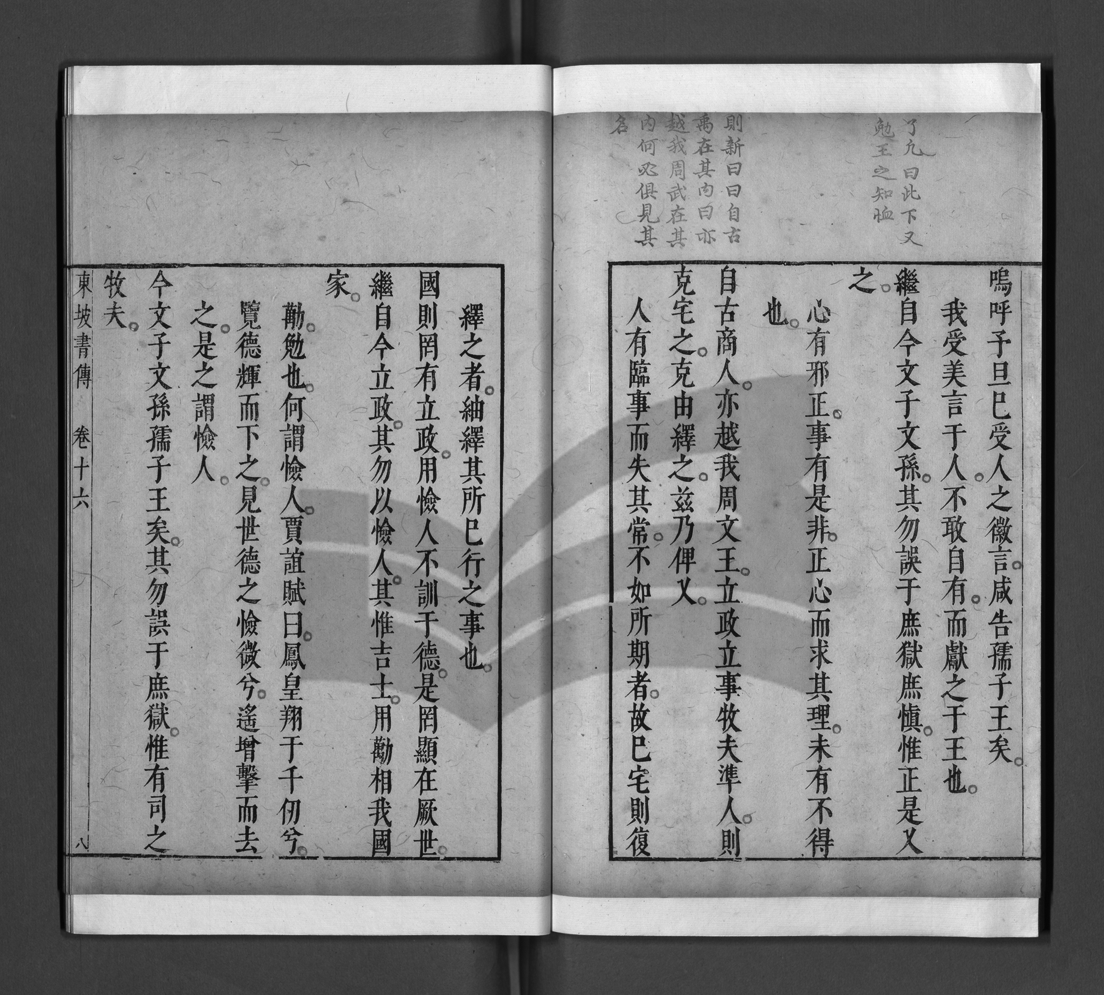 了凡曰此下又
勉王之知恤
則新曰曰自古
商在其内曰亦
越我周武在其
内何必俱見其
名
嗚呼予旦巳受人之徽言咸告孺子王矣
我受美言于人不敢自有而獻之于王也
繼自今文子文孫其勿誤于庶獄庶慎惟正是乂
之
心有邪正事有是非正心而求其理未有不得
也
自古商人亦越我周文王立政立事牧夫準人則
克宅之克由繹之茲乃俾乂
人有臨事而失其常不如所期者故巳宅則復
繹之者紬繹其所巳行之事也
國則罔有立政用憸人不訓于德是罔顯在厥世
繼自今立政其勿以憸人其惟吉士用勱相我國
家
勱勉也何謂憸人賈誼賦曰鳳皇翔于千仞兮
覽德輝而下之見世德之憸微兮遙增擊而去
之是之謂憸人
今文子文孫孺子王矣其勿誤于庶獄惟有司之
牧夫
東坡書傳 卷十六 八